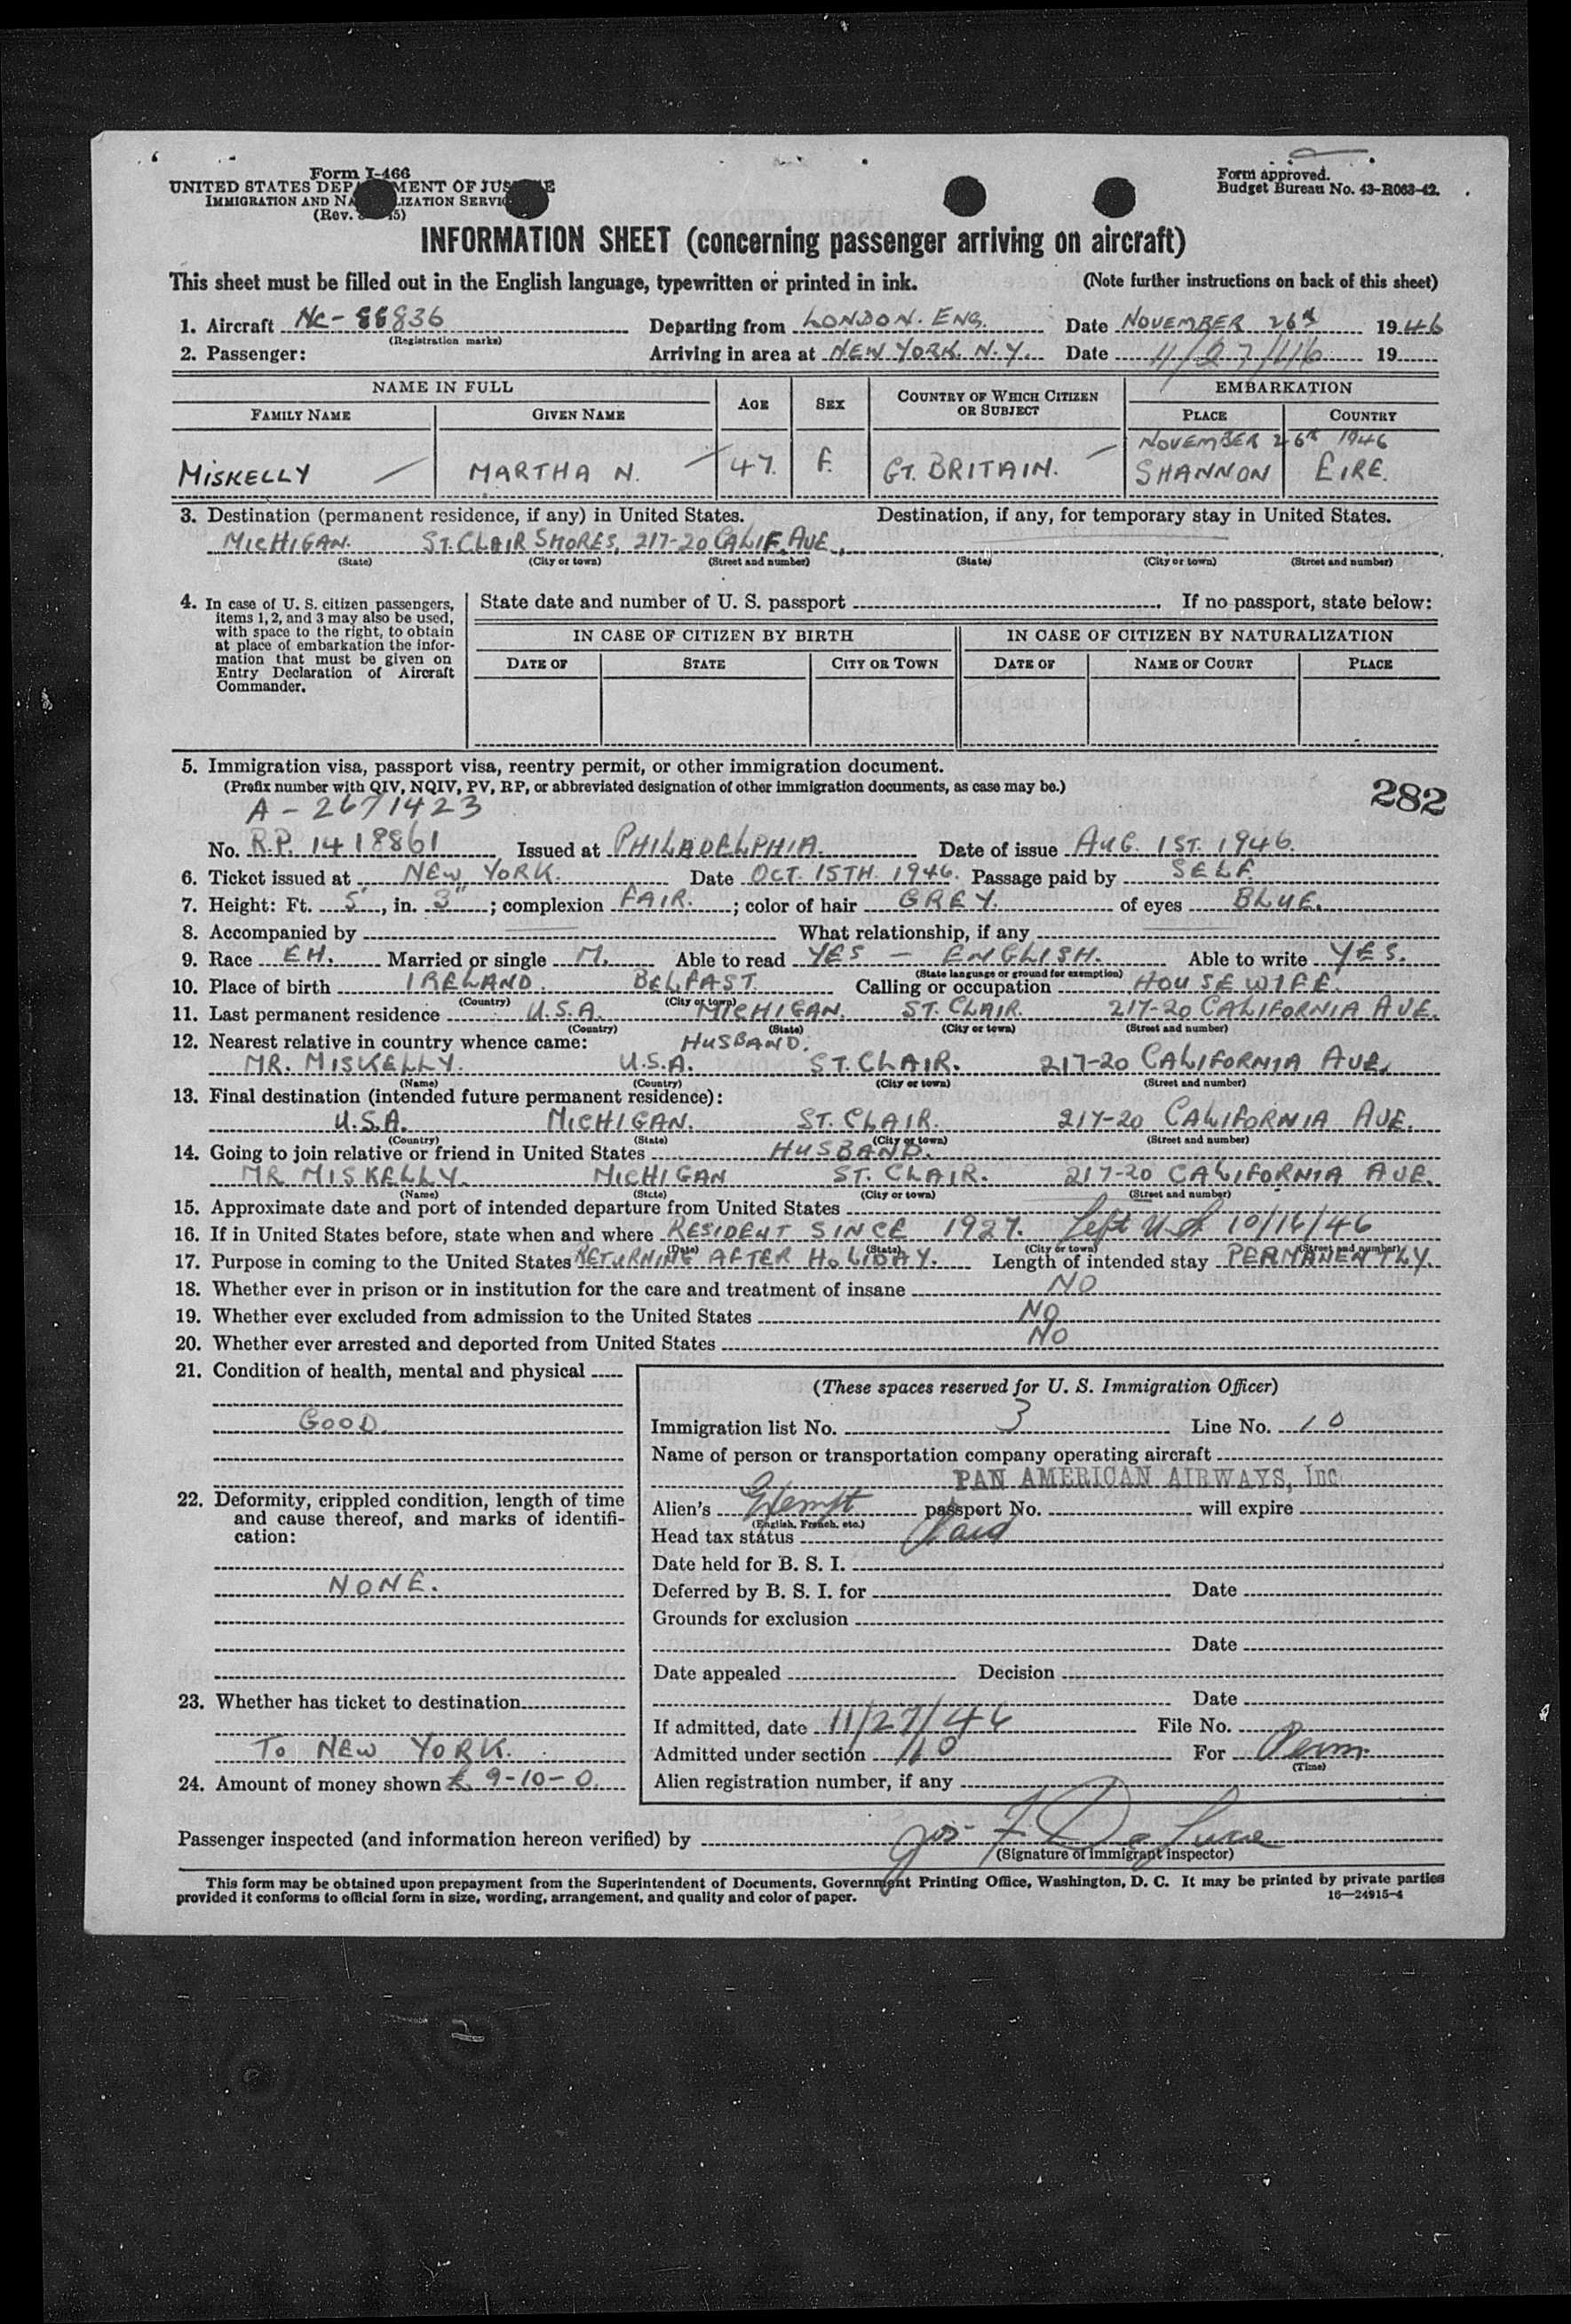 Form I-466
UNITED STATES DEP MENT OF JUS E
IMMIGRATION AND NA LIZATION SERVI
(Rev. 5)
Form approved.
Budget Bureau No. 43-R063-42.
INFORMATION SHEET (concerning passenger arriving on aircraft)
This sheet must be filled out in the English language, typewritten or printed in ink. (Note further instructions on back of this sheet)
1. Aircraft NC-88836 Departing from LONDON. ENG. Date NOVEMBER 26th 1946
(Registration marks)
2. Passenger: Arriving in area at NEW YORK. N.Y. Date 11/27/46 19
NAME IN FULL AGE SEX COUNTRY OF WHICH CITIZEN OR SUBJECT EMBARKATION
FAMILY NAME GIVEN NAME PLACE COUNTRY
NOVEMBER 26th 1946
MISKELLY MARTHA N. 47. F. GT. BRITAIN. SHANNON EIRE.
3. Destination (permanent residence, if any) in United States. Destination, if any, for temporary stay in United States.
MICHIGAN. ST. CLAIR SHORES, 217-20 CALIF. AVE.
(State) (City or town) (Street and number) (State) (City or town) (Street and number)
4. In case of U. S. citizen passengers, items 1, 2, and 3 may also be used, with space to the right, to obtain at place of embarkation the information that must be given on Entry Declaration of Aircraft Commander.
State date and number of U. S. passport . If no passport, state below:
IN CASE OF CITIZEN BY BIRTH IN CASE OF CITIZEN BY NATURALIZATION
DATE OF STATE CITY OR TOWN DATE OF NAME OF COURT PLACE
5. Immigration visa, passport visa, reentry permit, or other immigration document.
(Prefix number with QIV, NQIV, PV, RP, or abbreviated designation of other immigration documents, as case may be.) 282
A-2671423
No. R.P. 1418861 Issued at PHILADELPHIA. Date of issue AUG. 1ST. 1946.
6. Ticket issued at NEW YORK. Date OCT. 15TH. 1946. Passage paid by SELF.
7. Height: Ft. 5', in. 3"; complexion FAIR.; color of hair GREY. of eyes BLUE.
8. Accompanied by What relationship, if any
9. Race EH. Married or single M. Able to read YES - ENGLISH. Able to write YES.
(State language or ground for exemption)
10. Place of birth IRELAND. BELFAST. Calling or occupation HOUSEWIFE.
(Country) (City or town)
11. Last permanent residence U.S.A. MICHIGAN. ST. CLAIR. 217-20 CALIFORNIA AVE.
(Country) (State) (City or town) (Street and number)
12. Nearest relative in country whence came: HUSBAND.
MR. MISKELLY. U.S.A. ST. CLAIR. 217-20 CALIFORNIA AVE.
(Name) (Country) (City or town) (Street and number)
13. Final destination (intended future permanent residence):
U.S.A. MICHIGAN. ST. CLAIR. 217-20 CALIFORNIA AVE.
(Country) (State) (City or town) (Street and number)
14. Going to join relative or friend in United States HUSBAND.
MR MISKELLY. MICHIGAN ST. CLAIR. 217-20 CALIFORNIA AVE.
(Name) (State) (City or town) (Street and number)
15. Approximate date and port of intended departure from United States
16. If in United States before, state when and where RESIDENT SINCE 1927. Left U.S. 10/16/46
(Date) (State) (City or town) (Street and number)
17. Purpose in coming to the United States RETURNING AFTER HOLIDAY. Length of intended stay PERMANENTLY.
18. Whether ever in prison or in institution for the care and treatment of insane NO
19. Whether ever excluded from admission to the United States NO
20. Whether ever arrested and deported from United States NO
21. Condition of health, mental and physical
GOOD.
22. Deformity, crippled condition, length of time and cause thereof, and marks of identification:
NONE.
23. Whether has ticket to destination
TO NEW YORK.
24. Amount of money shown £ 9-10-0.
(These spaces reserved for U. S. Immigration Officer)
Immigration list No. 3 Line No. 10
Name of person or transportation company operating aircraft
PAN AMERICAN AIRWAYS, Inc.
Alien's Exempt passport No. will expire
(English, French, etc.)
Head tax status Paid
Date held for B. S. I.
Deferred by B. S. I. for Date
Grounds for exclusion
Date
Date appealed Decision
Date
If admitted, date 11/27/46 File No.
Admitted under section For Perm.
(Time)
Alien registration number, if any
Passenger inspected (and information hereon verified) by Jos. F. De Luca
(Signature of immigrant inspector)
This form may be obtained upon prepayment from the Superintendent of Documents, Government Printing Office, Washington, D. C. It may be printed by private parties
provided it conforms to official form in size, wording, arrangement, and quality and color of paper. 16—24915-4